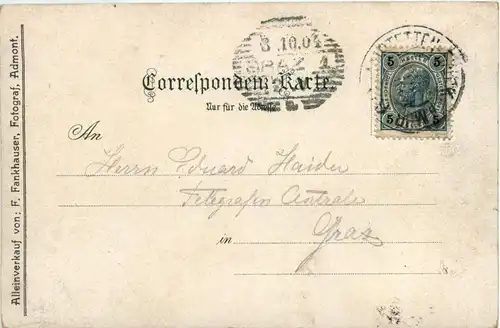 8.10.04
GRAZ 1
STETTEN
5 5
5 5
Correspondenz-Karte.
Nur für die Adresse
An
Herrn Eduard Haider
Telegrafen Centrale
in Graz
Alleinverkauf von: F. Fankhauser, Fotograf, Admont.